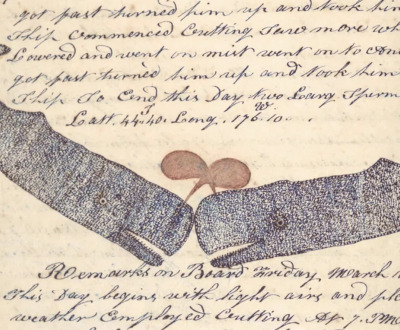 got fast turned him up and took him
Ship Commenced Cutting Saw more wh
Lowered and went on mist went on to
got fast turned him up and took him
Ship To End this Day two Large Sperm
Latt. 44°40. Long. 176.10.
Remarks on Board Friday March
This Day begins with light airs and ple
weather Employed Cutting At 7.PM